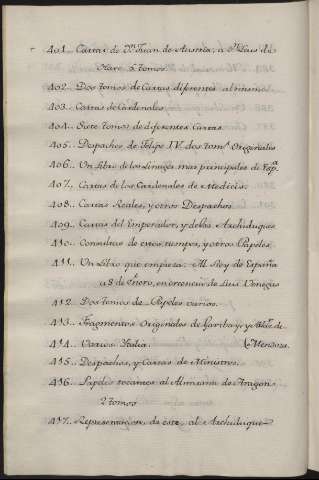 401.. Cartas de Dn. Juan de Austria, a Dn. Luis de
Haro. 5 tomos.
402.. Dos tomos de Cartas diferentes al mismo.
403.. Cartas de Cardenales.
404.. Siete tomos de diferentes Cartas.
405.. Despachos de Felipe IV. dos toms. Originales
406.. Un Libro de los Linages mas principales de Espa.
407.. Cartas de los Cardenales de Medicis.
408.. Cartas Reales, y otros Despachos.
409.. Cartas del Emperador, y de los Archiduques
410.. Consultas de estos tiempos, y otros Papeles.
411.. Un Libro que empieza: Al Rey de España
a 8 de Enero, en creencia de Luis Venegas
412.. Dos tomos de Papeles varios.
413.. Fragmentos Originales de Garibay y de
414.. Varios Italia. Mendoza.
415.. Despachos, y Cartas de Ministros.
416.. Papeles tocantes al Almirante de Aragon
2 tomos
417.. Representacion, de este, al Archiduque